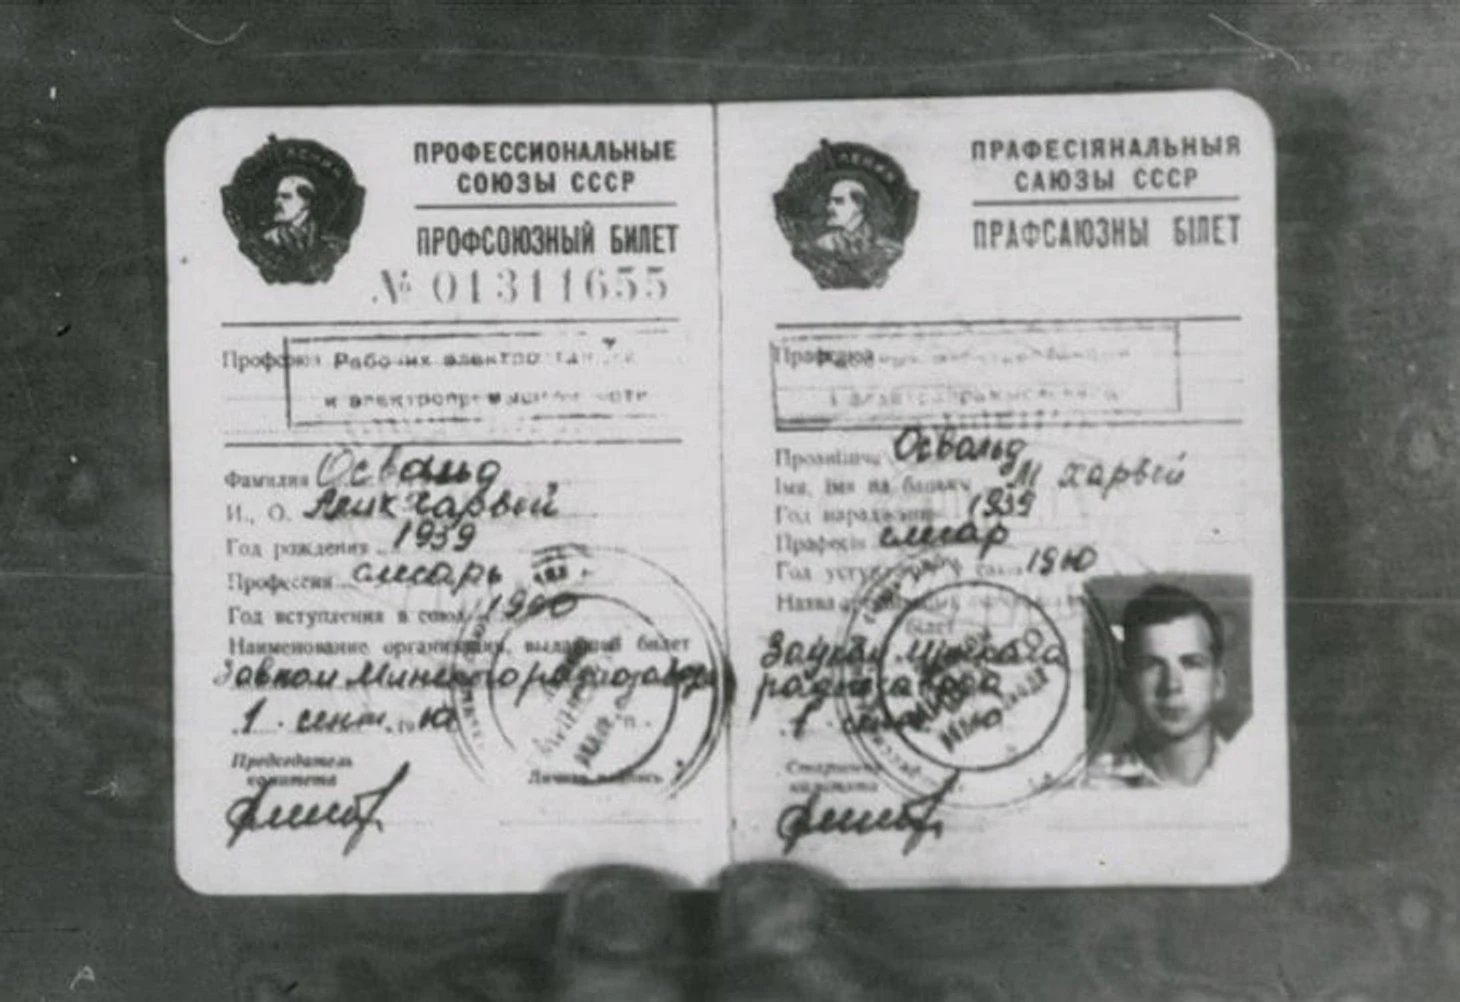 ПРОФЕССИОНАЛЬНЫЕ
СОЮЗЫ СССР
ПРОФСОЮЗНЫЙ БИЛЕТ
№ 01311655
Профсоюз Рабочих электростанций
и электропромышленности
Фамилия Освальд
И., О. Алик Харвей
Год рождения 1939
Профессия слесарь
Год вступления в союз 1960
Наименование организации, выдавшей билет
Завком Минского радиозавода
1 сент. 60
Председатель
комитета
Личная подпись
ПРАФЕСІЯНАЛЬНЫЯ
САЮЗЫ СССР
ПРАФСАЮЗНЫ БІЛЕТ
Прафсаюз
Прозвішча Освальд
Імя, імя па бацьку Харвей
Год нараджэння 1939
Прафесія слесар
Год уступ 1960
Назва
білет
Заўком
1
Старшыня
камітэта